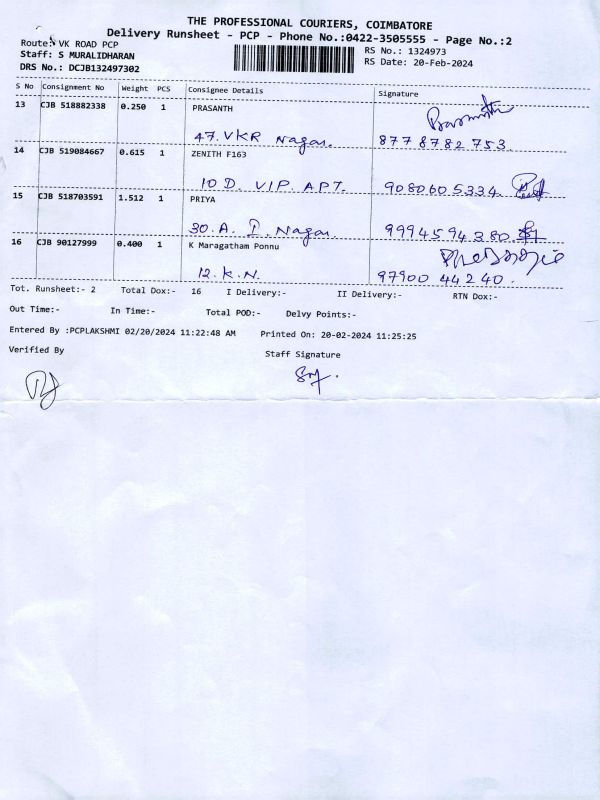 THE PROFESSIONAL COURIERS, COIMBATORE
Delivery Runsheet - PCP - Phone No.:0422-3505555 - Page No.:2
Route: VK ROAD PCP
RS No.: 1324973
Staff: S MURALIDHARAN
RS Date: 20-Feb-2024
DRS No.: DCJB132497302
S No Consignment No Weight PCS Consignee Details Signature
13 CJB 518882338 0.250 1 PRASANTH
47. VKR Nagar. 8778782753
14 CJB 519084667 0.615 1 ZENITH F163
10 D. VIP. APT. 9080605334
15 CJB 518703591 1.512 1 PRIYA
30. A. I. Nagar. 9994594380
16 CJB 90127999 0.400 1 K Maragatham Ponnu
12. K. N. 97900 44240.
Tot. Runsheet:- 2 Total Dox:- 16 I Delivery:- II Delivery:- RTN Dox:-
Out Time:- In Time:- Total POD:- Delvy Points:-
Entered By :PCPLAKSHMI 02/20/2024 11:22:48 AM Printed On: 20-02-2024 11:25:25
Verified By Staff Signature